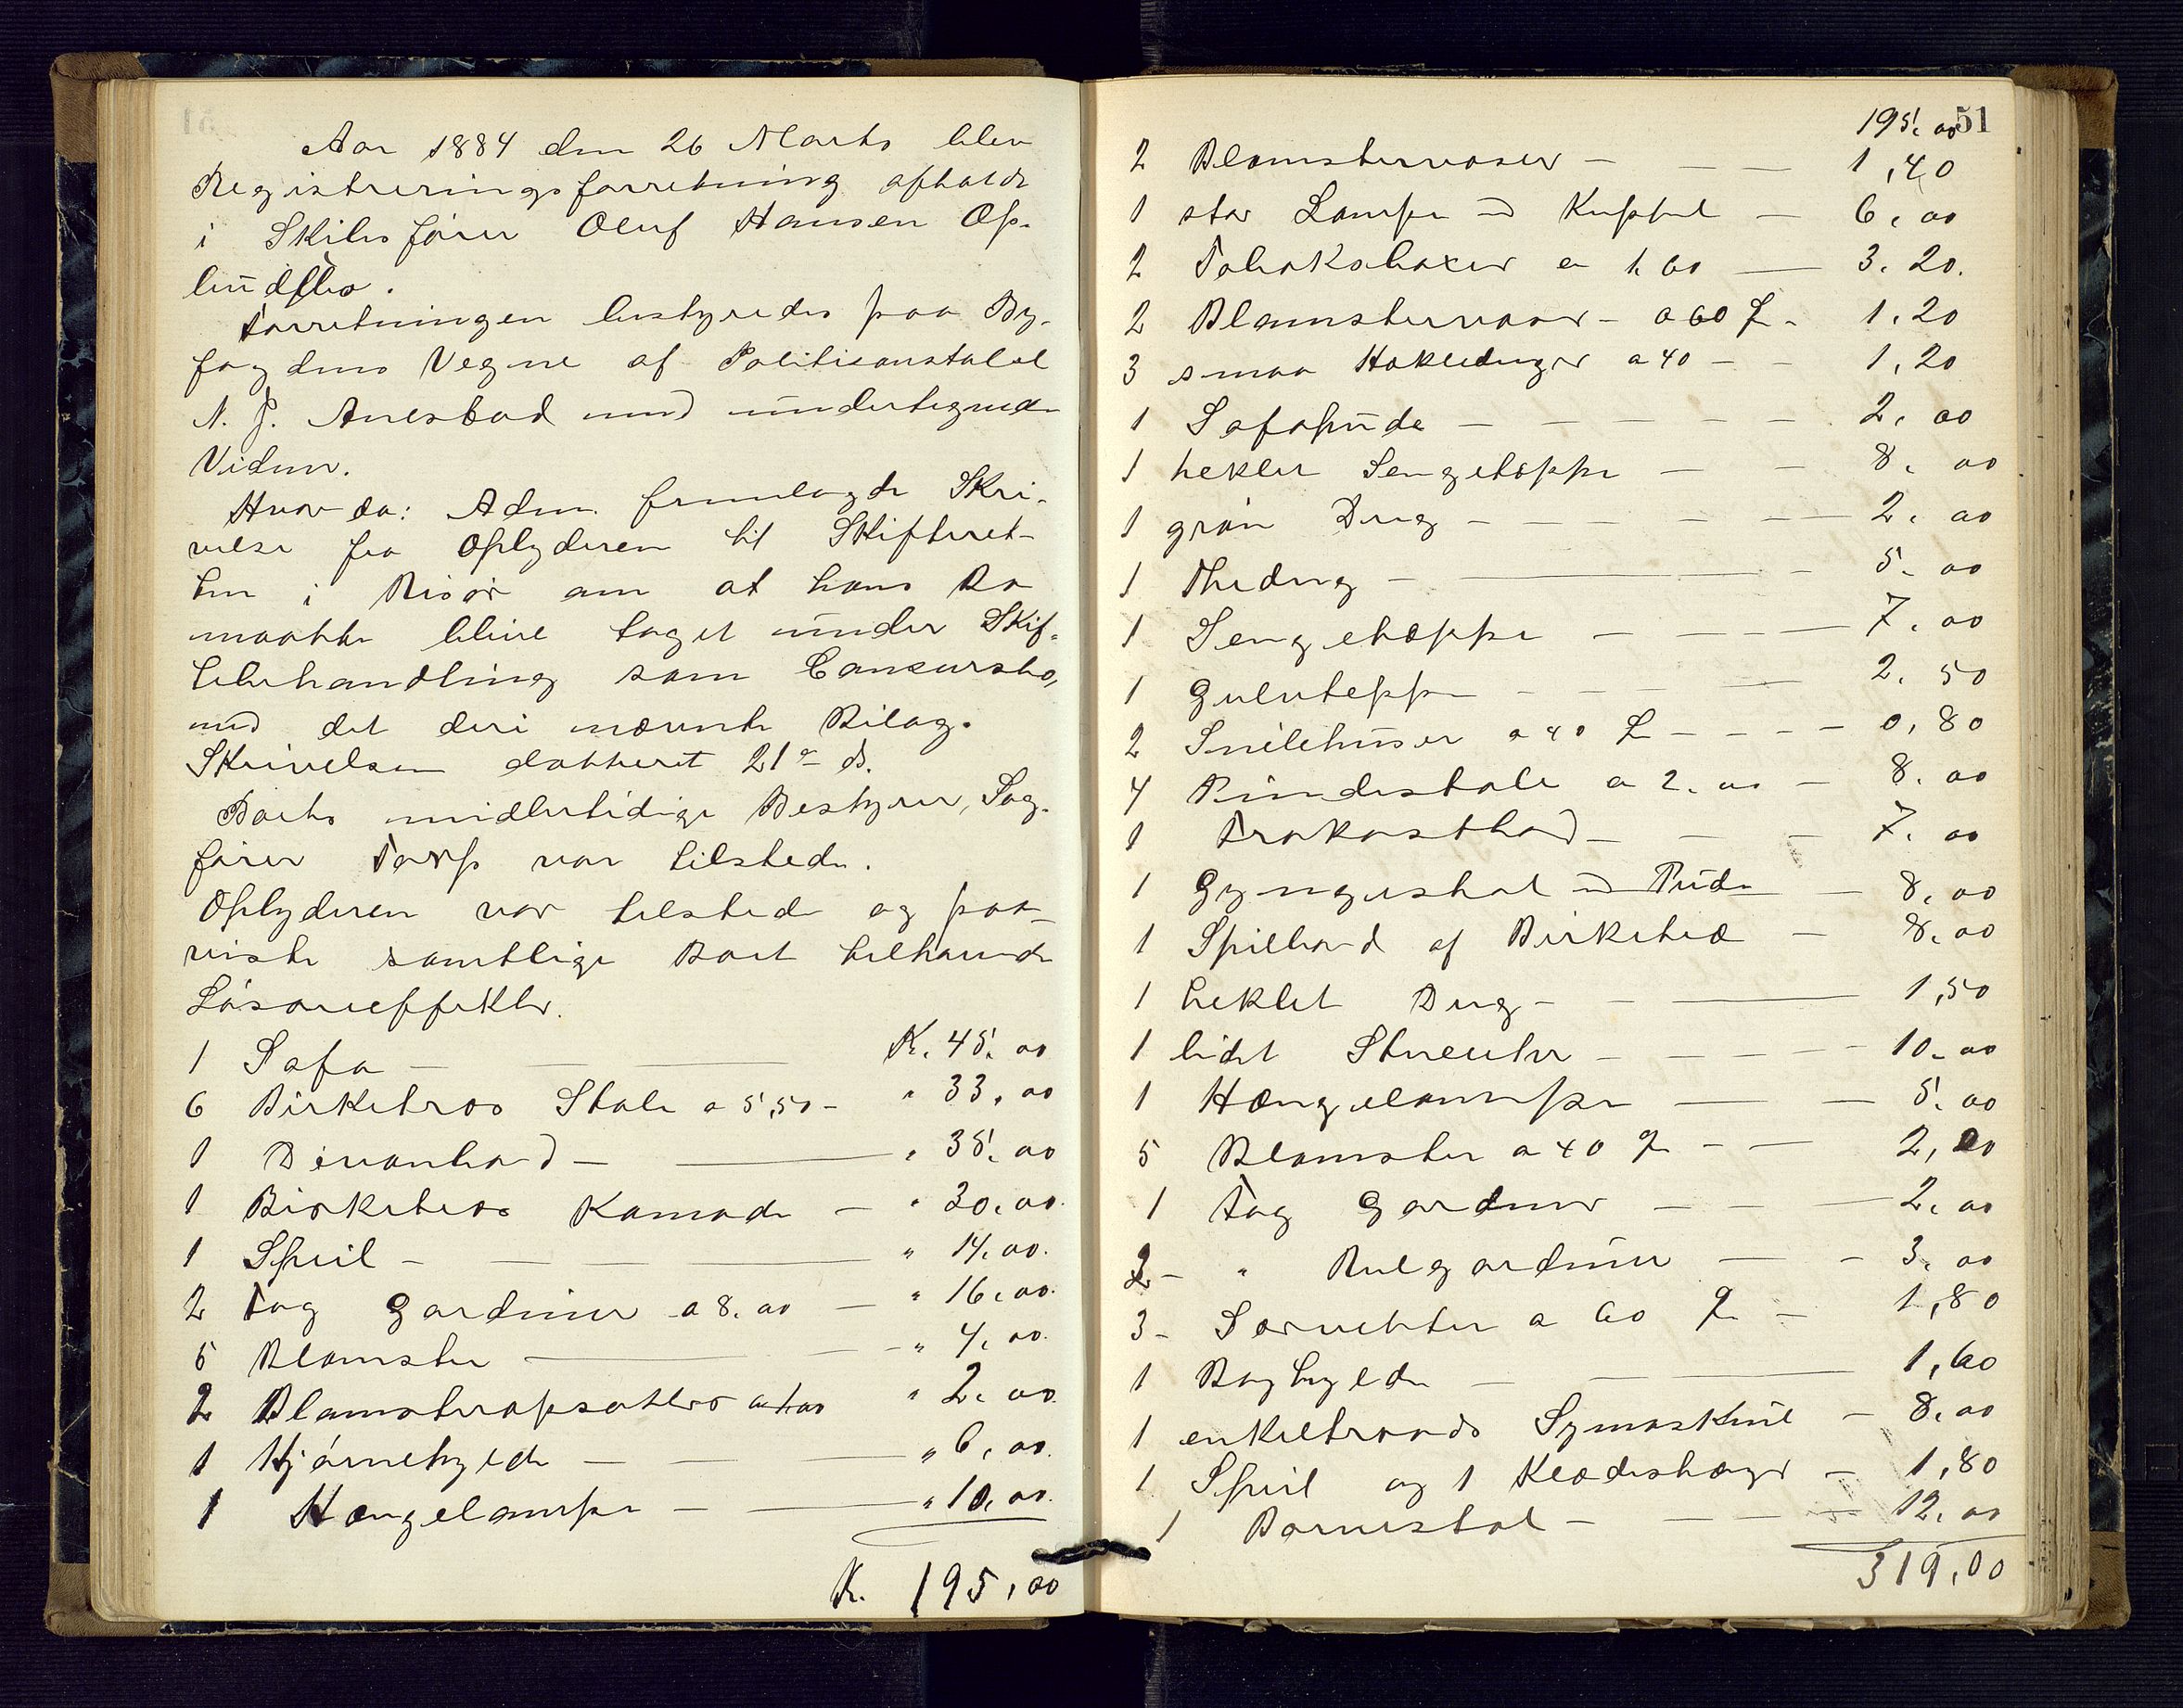 Aar 1884 den 26 Marts blev
Registreringsforretning afholdt
i Skibsfører Oluf Hansen Op-
budsbo.
Forretningen bestyredes paa By-
fogdens Vegne af Politikonstabel
N. J. Anesbad med undertegnede
Vidner.
Hvor da: Adm. fremlagde Skri-
velse fra Opbyderen til Skifteret-
ten i Risør om at hans Bo
maatte blive taget under Skif-
tebehandling som Concursbo,
med det deri nævnte Bilag.
Skrivelsen datteret 21de ds.
Boets midlertidige Bestyrer, Sag-
fører Torp var tilstede.
Opbyderen var tilstede og paa-
viste samtlige Boet tilhørende
Løsøreeffekter.
1 Sofa — K. 45. 00
6 Birketræs Stole a 5,50 - " 33, 00
1 Divanbord — " 35. 00
1 Birketræs Komode — " 30. 00.
1 Speil — " 14. 00.
2 Fag Gardiner a 8. 00 — " 16. 00.
5 Blomster — " 4. 00.
2 Blomsteropsatser a 1.00 " 2. 00.
1 Hjørnehylde — " 6, 00.
1 Hængelampe — " 10. 00.
K. 195,00
51
195. 00
2 Blomstervaser — 1,40
1 stor Lampe m Kuppel — 6, 00
2 Tobaksboxer a 1. 60 — 3. 20.
2 Blomstervaser - a 60 Ø - 1. 20
3 smaa Hækleduger a 40 - 1,20
1 Sofapude — 2. 00
1 heklet Sengeteppe — 8. 00
1 grøn Dug — 2. 00
1 Thedug — 5. 00
1 Sengeteppe — 7. 00
1 Gulvteppe — 2. 50
2 Snilehuser a 40 Ø — 0,80
4 Pindestole a 2. 00 — 8. 00
1 Frokostbord — 7. 00
1 Gyngestol m Pude — 8. 00
1 Spillebord af Birketræ — 8. 00
1 heklet Dug — 1,50
1 lidet Stueuhr — 10. 00
1 Hængelampe — 5. 00
5 Blomster a 40 Ø — 2,00
1 Fag Gardiner — 2. 00
2 - " Rulgardiner — 3. 00
3 - Servietter a 60 Ø — 1,80
1 Boghylde — 1,60
1 enkeltraads Symaskine — 8. 00
1 Speil og 1 Klædeshænger — 1,80
1 Barnestol — 12. 00
319,00